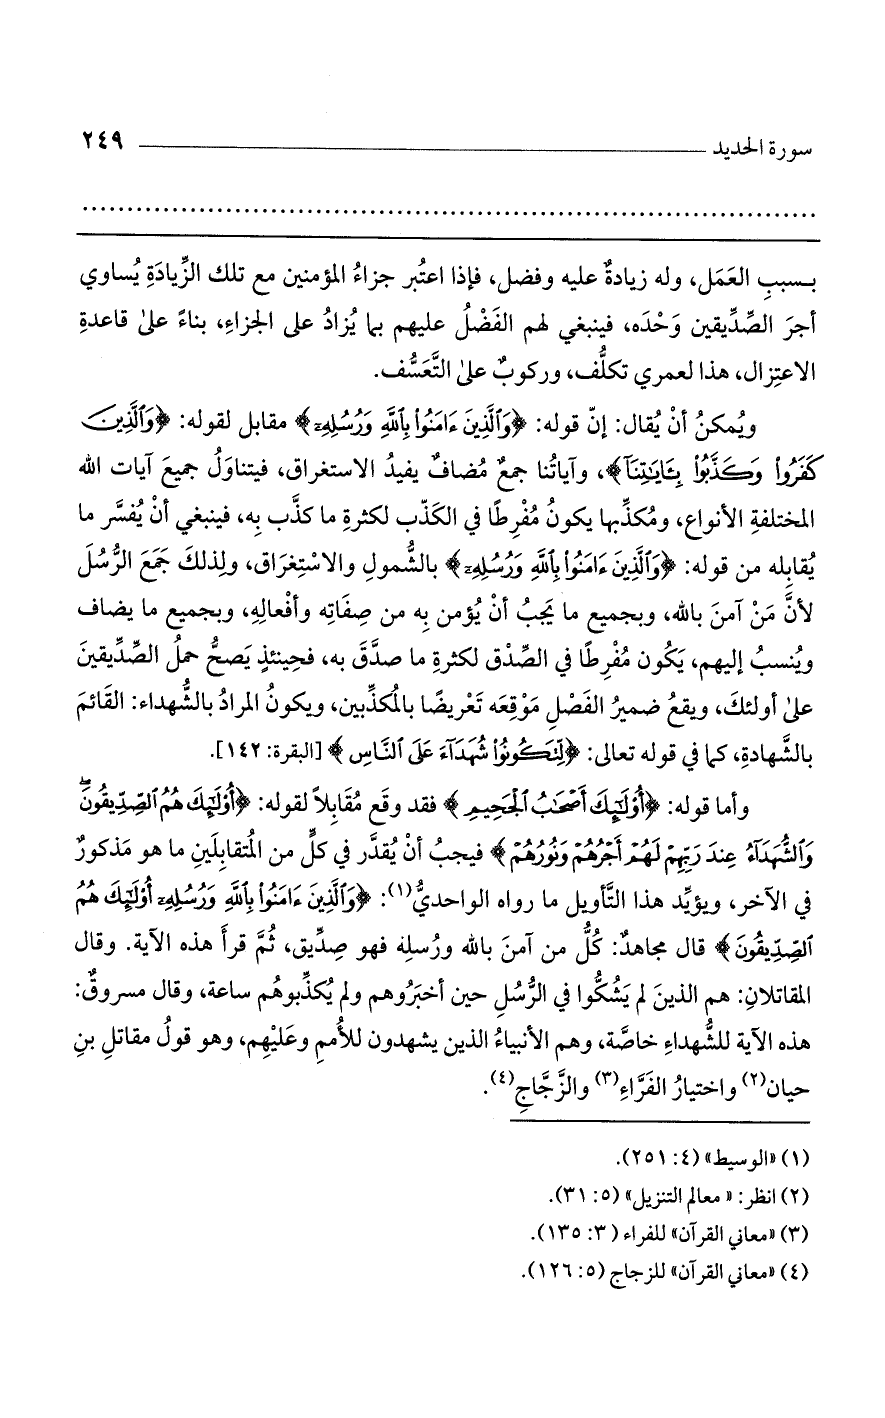 سورة الحديد ٢٤٩
بسببِ العَمَل، وله زيادةٌ عليه وفضل، فإذا اعتُبر جزاءُ المؤمنين مع تلك الزِّيادَةِ يُساوي
أجرَ الصِّدِّيقين وَحْدَه، فينبغي لهم الفَضْلُ عليهم بما يُزادُ على الجزاءِ، بناءً على قاعدةِ
الاعتِزال، هذا لعمري تكلُّف، وركوبٌ على التَّعَسُّف.
ويُمكنُ أنْ يُقال: إنّ قوله: ﴿وَٱلَّذِينَ ءَامَنُوا۟ بِٱللَّهِ وَرُسُلِهِۦ﴾ مقابل لقوله: ﴿وَٱلَّذِينَ
كَفَرُوا۟ وَكَذَّبُوا۟ بِـَٔايَـٰتِنَآ﴾، وآياتُنا جمعٌ مُضافٌ يفيدُ الاستغراق، فيتناوَلُ جميعَ آيات الله
المختلفةِ الأنواع، ومُكذِّبها يكونُ مُفْرِطًا في الكَذّب لكثرةِ ما كذَّب به، فينبغي أنْ يُفسَّر ما
يُقابله من قوله: ﴿وَٱلَّذِينَ ءَامَنُوا۟ بِٱللَّهِ وَرُسُلِهِۦ﴾ بالشُّمولِ والاسْتِغرَاق، ولِذلكَ جَمَعَ الرُّسُلَ
لأنَّ مَنْ آمنَ بالله، وبجميعِ ما يَجبُ أنْ يُؤمن بِه من صِفَاتِه وأفْعالِهِ، وبجميعِ ما يضاف
ويُنسبُ إليهم، يَكُون مُفْرِطًا في الصِّدْق لكثرةِ ما صدَّق به، فحِينئذٍ يَصحُّ حملُ الصِّدِّيقينَ
على أولئكَ، ويقعُ ضميرُ الفَصْلِ مَوْقِعَه تَعْريضًا بالمُكذِّبين، ويكونُ المرادُ بالشُّهداء: القَائمَ
بالشَّهادةِ، كما في قوله تعالى: ﴿لِّتَكُونُوا۟ شُهَدَآءَ عَلَى ٱلنَّاسِ﴾ [البقرة: ١٤٢].
وأما قوله: ﴿أُو۟لَـٰٓئِكَ أَصْحَـٰبُ ٱلْجَحِيمِ﴾ فقد وقَع مُقَابلاً لقوله: ﴿أُو۟لَـٰٓئِكَ هُمُ ٱلصِّدِّيقُونَ ۖ
وَٱلشُّهَدَآءُ عِندَ رَبِّهِمْ لَهُمْ أَجْرُهُمْ وَنُورُهُمْ﴾ فيجبُ أنْ يُقدَّر في كلٍّ من المُتقابلَينِ ما هو مَذكورٌ
في الآخر، ويؤيِّد هذا التَّأويل ما رواه الواحديُّ(١): ﴿وَٱلَّذِينَ ءَامَنُوا۟ بِٱللَّهِ وَرُسُلِهِۦٓ أُو۟لَـٰٓئِكَ هُمُ
ٱلصِّدِّيقُونَ﴾ قال مجاهدٌ: كُلُّ من آمنَ بالله ورُسلِه فهو صِدِّيق، ثُمَّ قرأَ هذه الآية. وقال
المقاتلان: هم الذينَ لم يَشُكُّوا في الرُّسُلِ حين أخبَرُوهم ولم يُكذِّبوهُم ساعة، وقال مسروقٌ:
هذه الآية للشُّهداءِ خاصَّة، وهم الأنبياءُ الذين يشهدون للأُممِ وعَليْهِم، وهو قولُ مقاتلِ بنِ
حيان(٢) واختيارُ الفَرَّاءِ(٣) والزَّجَّاجِ(٤).
(١) «الوسيط» (٤: ٢٥١).
(٢) انظر: «معالم التنزيل» (٥: ٣١).
(٣) «معاني القرآن» للفراء (٣: ١٣٥).
(٤) «معاني القرآن» للزجاج (٥: ١٢٦).